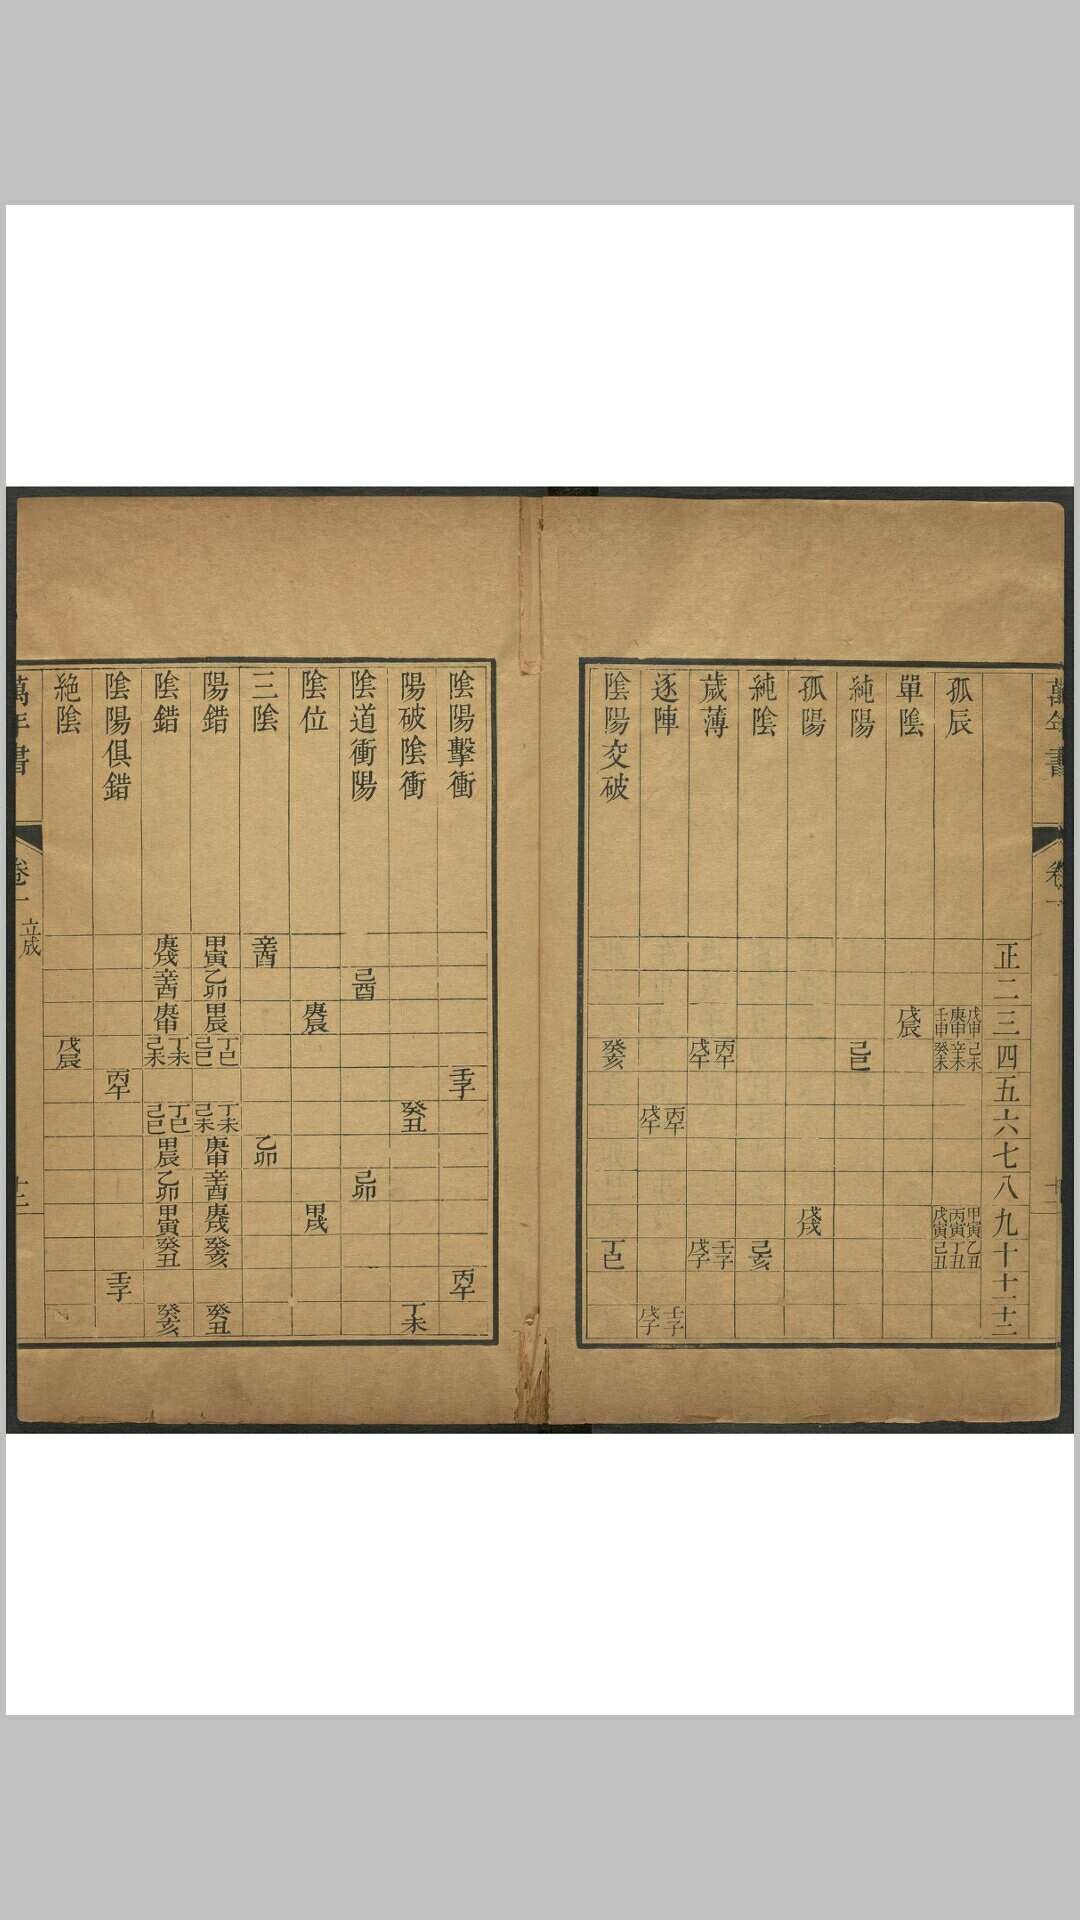 萬年書 卷一
正 二 三 四 五 六 七 八 九 十 十一 十二
孤辰 戊申 庚申 壬申 己未 辛未 癸未 甲寅 丙寅 戊寅 乙丑 丁丑 己丑
單陰 戊辰
純陽 己巳
孤陽 戊戌
純陰 己亥
歲薄 丙午 戊午 壬子 戊子
逐陣 丙午 戊午 壬子 戊子
陰陽交破 癸亥 丁巳
陰陽擊衝 壬子 丙午
陽破陰衝 癸丑 丁未
陰道衝陽 己酉 己卯
陰位 庚辰 甲戌
三陰 辛酉 乙卯
陽錯 甲寅 乙卯 甲辰 丁巳 己巳 丁未 己未 庚申 辛酉 庚戌 癸亥 癸丑
陰錯 庚戌 辛酉 庚申 丁未 己未 丁巳 己巳 甲辰 乙卯 甲寅 癸丑 癸亥
陰陽俱錯 丙午 壬子
絕陰 戊辰
萬年書 卷一 立成